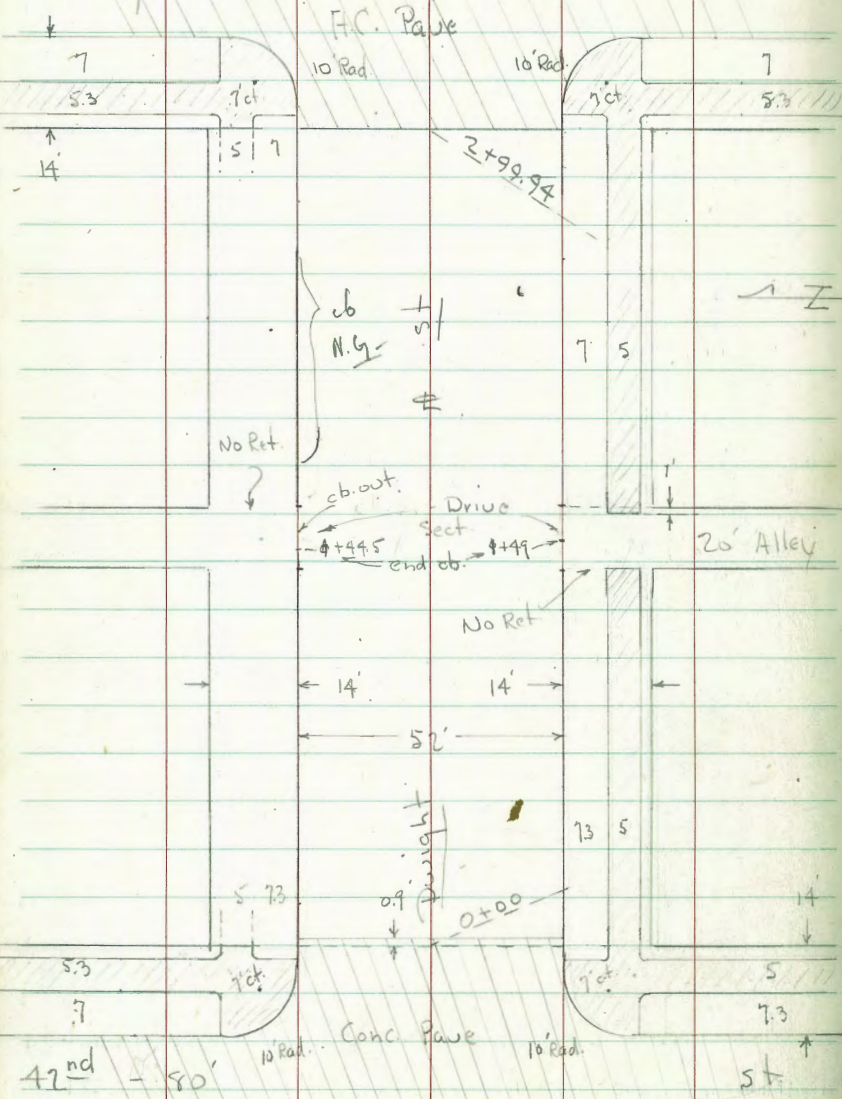 A.C. Pave
7
10' Rad.
10' Rad.
7
5.3
7'ct
7'ct
5.3
14'
5
7
2+99.94
cb
N.G.
St
7
5
No Ret.
cb. out.
Drive
Sect.
1'
20' Alley
1+44.5
end cb.
1+49
No Ret
14'
14'
52'
Dwight
7.3
5
5
7.3
0.9'
0+00
14'
5.3
7'ct
7'ct
5
7
7.3
Conc. Pave
10' Rad.
10' Rad.
42nd - 80'
St